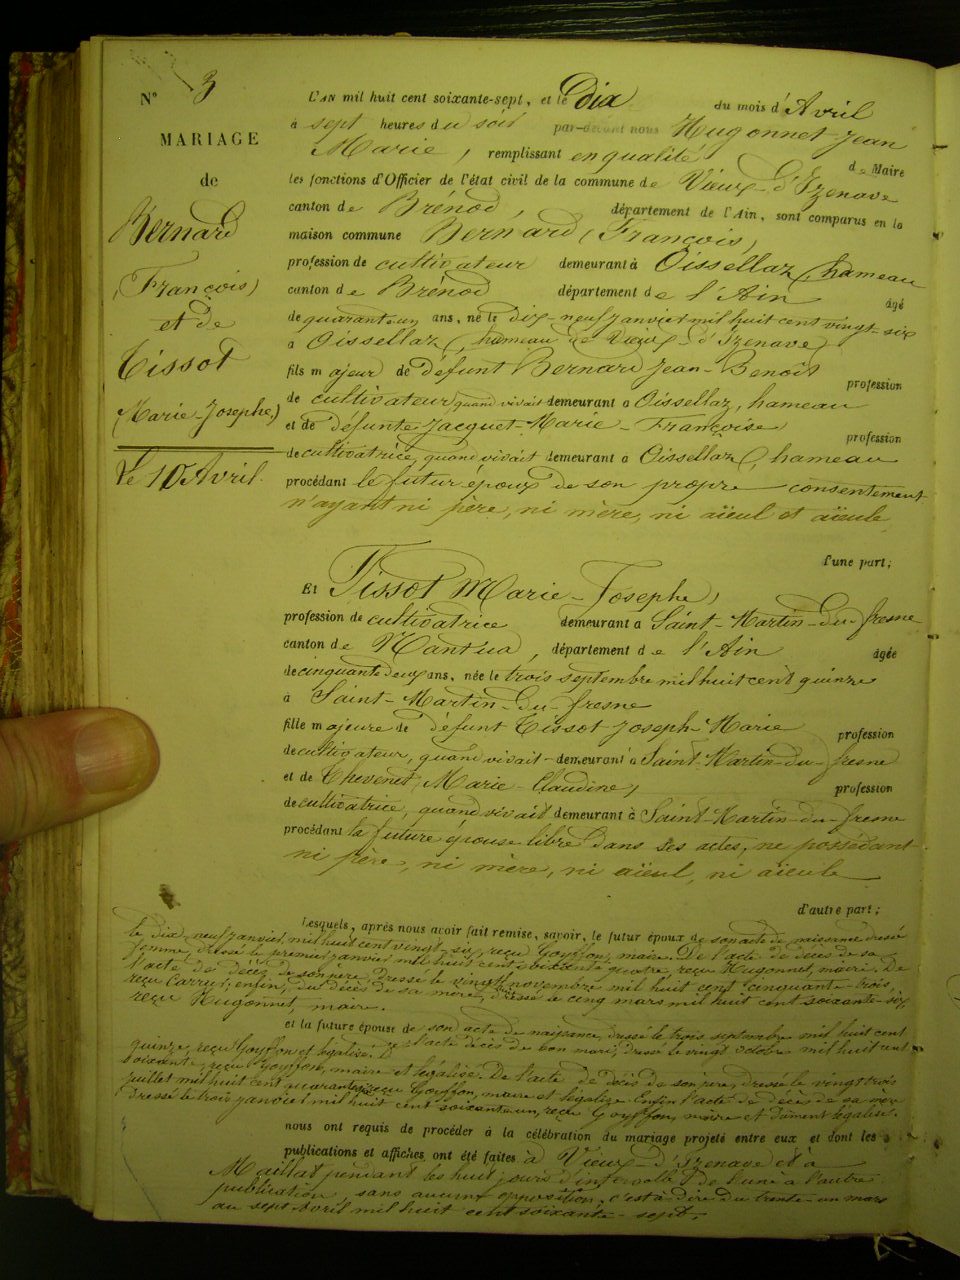 N° 3
MARIAGE
de
Bernard
(François)
et de
Tissot
(Marie-Josephe)
Le 10 Avril.
L'AN mil huit cent soixante-sept, et le dix du mois d'Avril
à sept heures du soir par-devant nous Hugonnet Jean
Marie, remplissant en qualité de Maire
les fonctions d'Officier de l'état civil de la commune de Vieux-d'Izenave
canton de Brénod, département de l'Ain, sont comparus en la
maison commune Bernard (François)
profession de cultivateur demeurant à Oissellaz (hameau
canton de Brénod département de l'Ain âgé
de quarante un ans, né le dix-neuf janvier mil huit cent vingt-six
à Oissellaz (hameau de Vieux-d'Izenave)
fils majeur de défunt Bernard Jean-Benoit profession
de cultivateur quand vivait demeurant à Oissellaz, hameau
et de défunte Jacquet-Marie-Françoise profession
de cultivatrice, quand vivait demeurant à Oissellaz, hameau
procédant le futur époux de son propre consentement
n'ayant ni père, ni mère, ni aïeul et aïeule
d'une part;
Et Tissot Marie-Josephe,
profession de cultivatrice demeurant à Saint-Martin-du-fresne
canton de Nantua, département de l'Ain âgée
de cinquante deux ans, née le trois septembre mil huit cent quinze
à Saint-Martin-du-fresne
fille majeure de défunt Tissot Joseph-Marie profession
de cultivateur, quand vivait demeurant à Saint-Martin-du-fresne
et de Thevenet, Marie-Claudine, profession
de cultivatrice, quand vivait demeurant à Saint-Martin-du-fresne
procédant la future épouse libre dans ses actes, ne possédant
ni père, ni mère, ni aïeul, ni aïeule
d'autre part;
Lesquels, après nous avoir fait remise, savoir, le futur époux de son acte de naissance dressé
le dix-neuf janvier, mil huit cent vingt-six, reçu Goyffon, maire. De l'acte de décès de sa
femme dressé le premier janvier mil huit cent soixante quatre, reçu Hugonnet, maire. De
l'acte de décès de son père dressé le vingt novembre mil huit cent cinquante-trois,
reçu Carry; enfin, du décès de sa mère, dressé le cinq mars mil huit cent soixante-six
reçu Hugonnet, maire.
et la future épouse de son acte de naissance, dressé le trois septembre mil huit cent
quinze, reçu Goyffon et légalisé. De l'acte décès de son mari, dressé le vingt octobre mil huit cent
soixante, reçu Goyffon, maire et légalisé. De l'acte de décès de son père, dressé le vingt trois
juillet mil huit cent quarante reçu Goyffon, maire et légalisé. Enfin l'acte de décès de sa mère
dressé le trois janvier mil huit cent soixante un, reçu Goyffon, maire et dûment légalisé.
nous ont requis de procéder à la célébration du mariage projeté entre eux et dont les
publications et affiches ont été faites à Vieux-d'Izenave et à
Maillat pendant les huit jours d'intervalle de l'une à l'autre
publication, sans aucune opposition, c'est à dire du trente-un mars
au sept Avril mil huit cent soixante-sept.